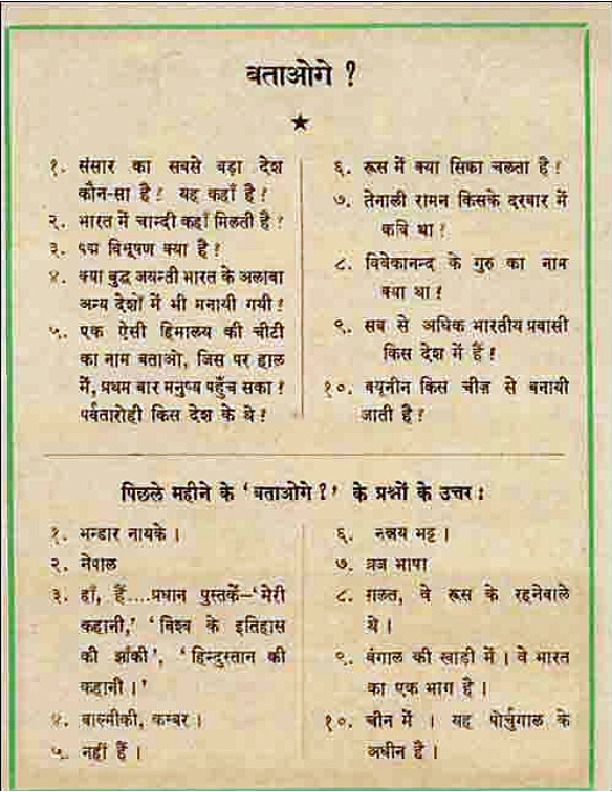 बताओगे ?
★
१. संसार का सबसे बड़ा देश
कौन-सा है? यह कहाँ है?
२. भारत में चान्दी कहाँ मिलती है?
३. पद्म विभूषण क्या है?
४. क्या बुद्ध जयन्ती भारत के अलावा
अन्य देशों में भी मनायी गयी?
५. एक ऐसी हिमालय की चोटी
का नाम बताओ, जिस पर हाल
में, प्रथम बार मनुष्य पहुँच सका?
पर्वतारोही किस देश के थे?
६. रूस में क्या सिक्का चलता है?
७. तेनाली रामन किसके दरबार में
कवि था?
८. विवेकानन्द के गुरु का नाम
क्या था?
९. सब से अधिक भारतीय प्रवासी
किस देश में हैं?
१०. क्यूनीन किस चीज़ से बनायी
जाती है?
पिछले महीने के 'बताओगे?' के प्रश्नों के उत्तर:
१. भन्डार नायके।
२. नेपाल
३. हाँ, हैं....प्रधान पुस्तकें—'मेरी
कहानी,' 'विश्व के इतिहास
की झाँकी', 'हिन्दुस्तान की
कहानी।'
४. वाल्मीकी, कम्बर।
५. नहीं हैं।
६. नन्नय भट्ट।
७. ब्रज भाषा
८. ग़लत, वे रूस के रहनेवाले
थे।
९. बंगाल की खाड़ी में। वे भारत
का एक भाग है।
१०. चीन में। यह पोर्चुगाल के
अधीन है।